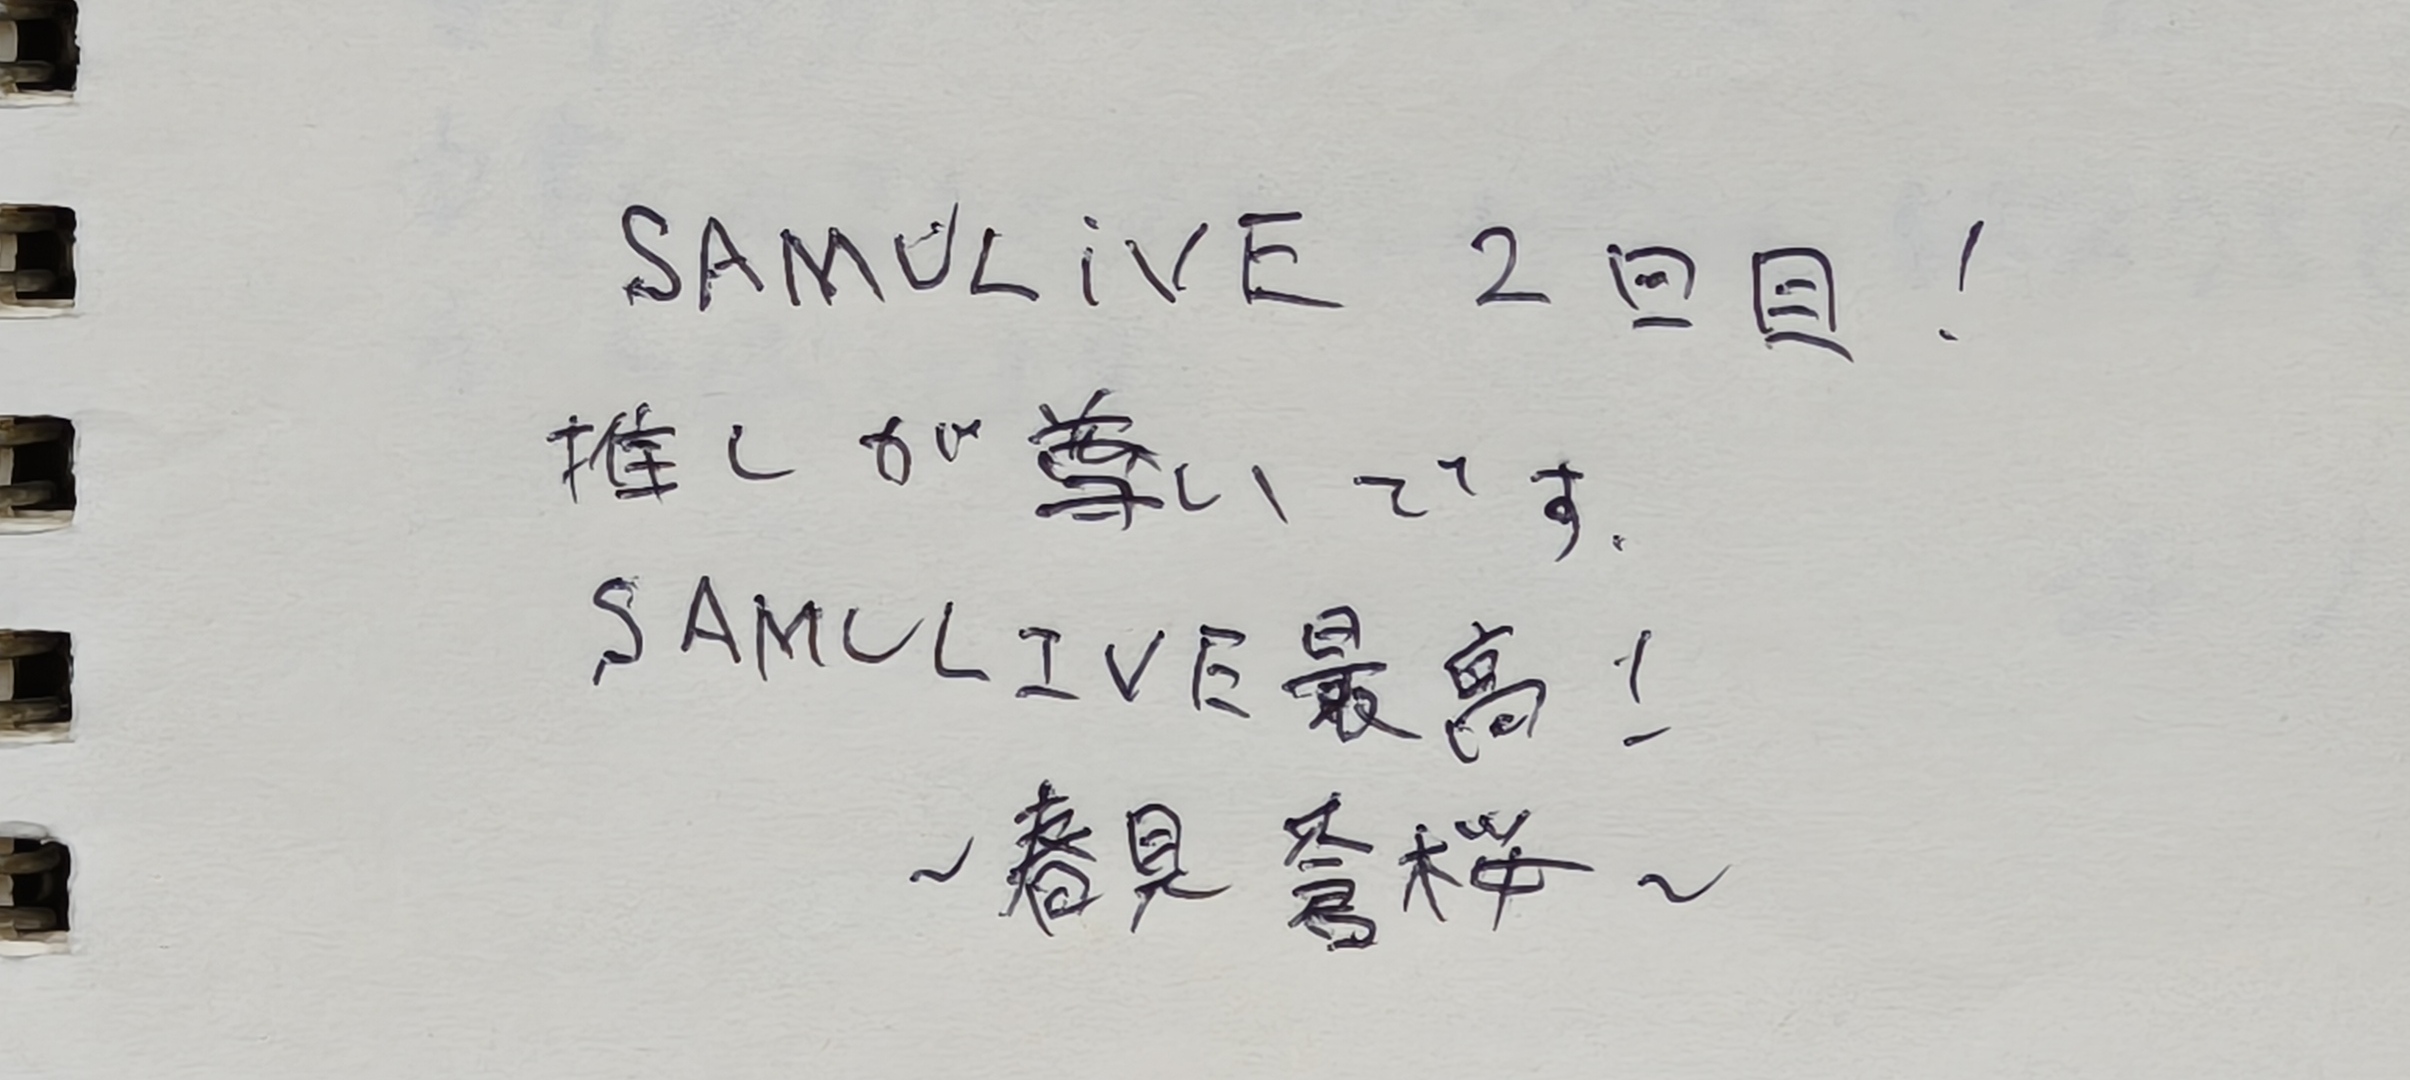 SAMULiVE 2回目!
推しが尊いです.
SAMULIVE最高!
~春見 桜~